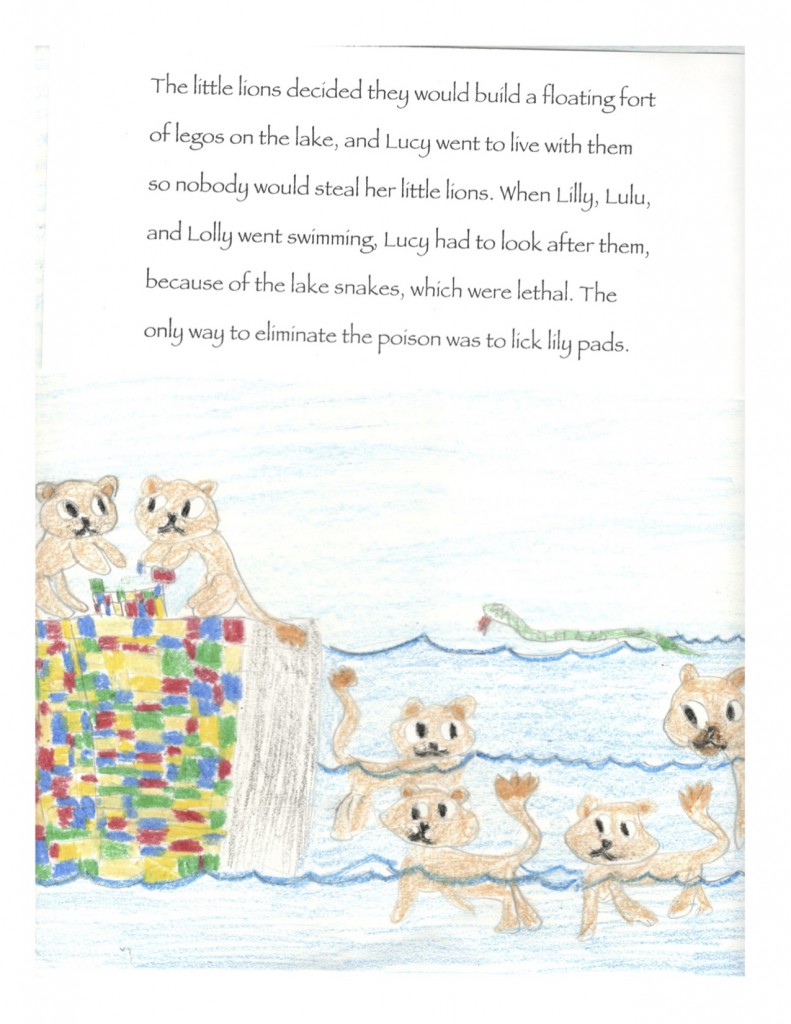 The little lions decided they would build a floating fort
of legos on the lake, and Lucy went to live with them
so nobody would steal her little lions. When Lilly, Lulu,
and Lolly went swimming, Lucy had to look after them,
because of the lake snakes, which were lethal. The
only way to eliminate the poison was to lick lily pads.